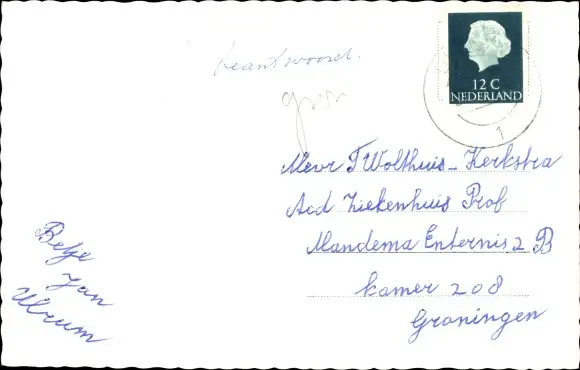 beantwoord.
12 C
NEDERLAND
1
Mevr T Wolthuis - Kerkstra
Acd Ziekenhuis Prof
Mandema Enternis 2 B
kamer 208
Groningen
Betje
Jan
Ulrum